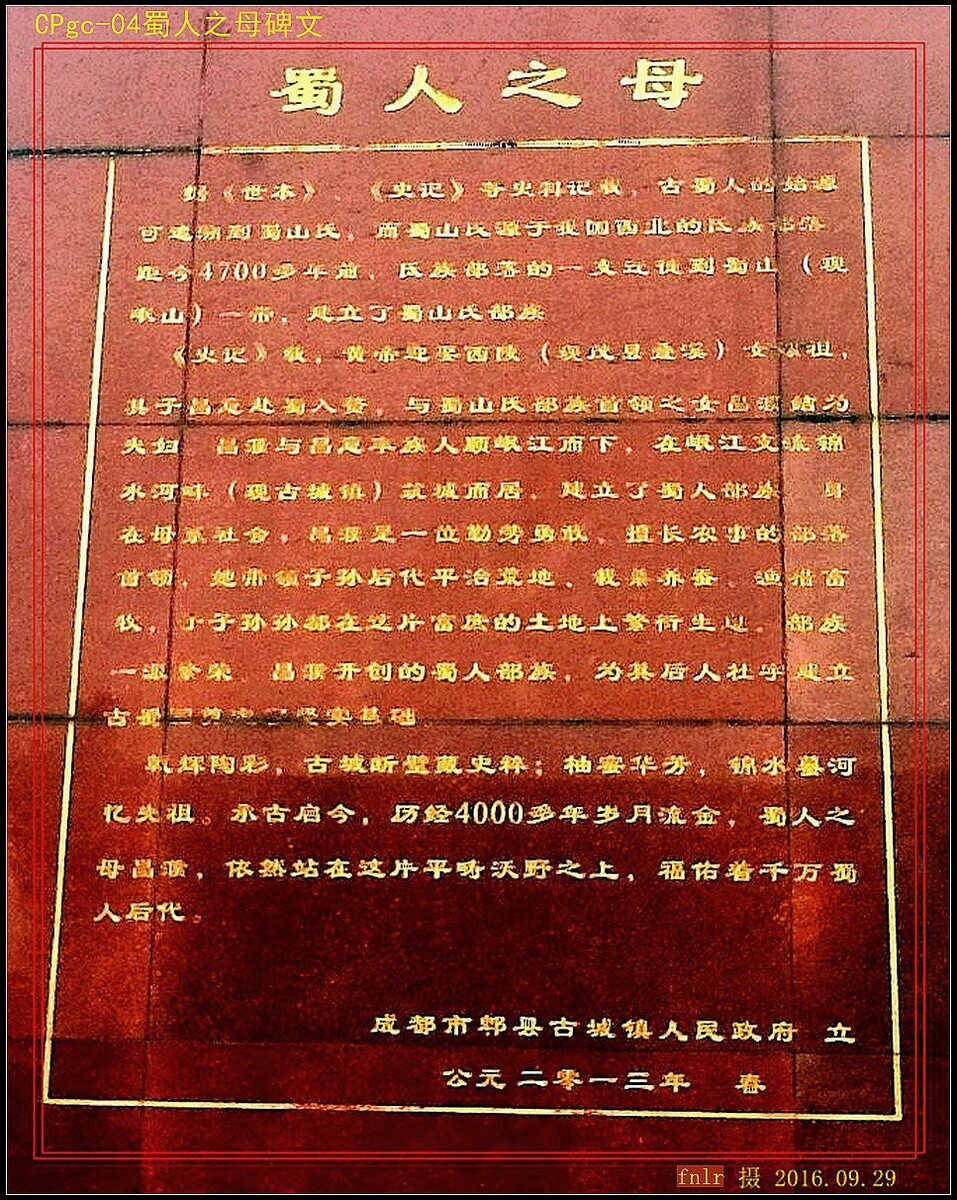 CPgc-04蜀人之母碑文
蜀人之母
据《世本》、《史记》等史料记载，古蜀人的始源
可追溯到蜀山氏，而蜀山氏源于我国西北的氏族部落。
距今4700多年前，氏族部落的一支迁徙到蜀山（现
岷山）一带，建立了蜀山氏部族
《史记》载，黄帝迎娶西陵（现茂县叠溪）女嫘祖，
其子昌意赴蜀入赘，与蜀山氏部族首领之女昌濮结为
夫妇 昌濮与昌意率族人顺岷江而下，在岷江支流锦
水河畔（现古城镇）筑城而居，建立了蜀人部族 身
在母系社会，昌濮是一位勤劳勇敢、擅长农事的部落
首领，她带领子孙后代平治荒地、栽桑养蚕、渔猎畜
牧，子子孙孙都在这片富庶的土地上繁衍生息，部族
一派繁荣 昌濮开创的蜀人部族，为其后人杜宇建立
古蜀国 坚实基础
乾辉陶彩，古城断壁藏史粹；柚蜜华芳，锦水墓河
忆先祖。承古启今，历经4000多年岁月流金，蜀人之
母昌濮，依然站在这片平畴沃野之上，福佑着千万蜀
人后代。
成都市郫县古城镇人民政府 立
公元二零一三年 春
fnlr 摄 2016.09.29